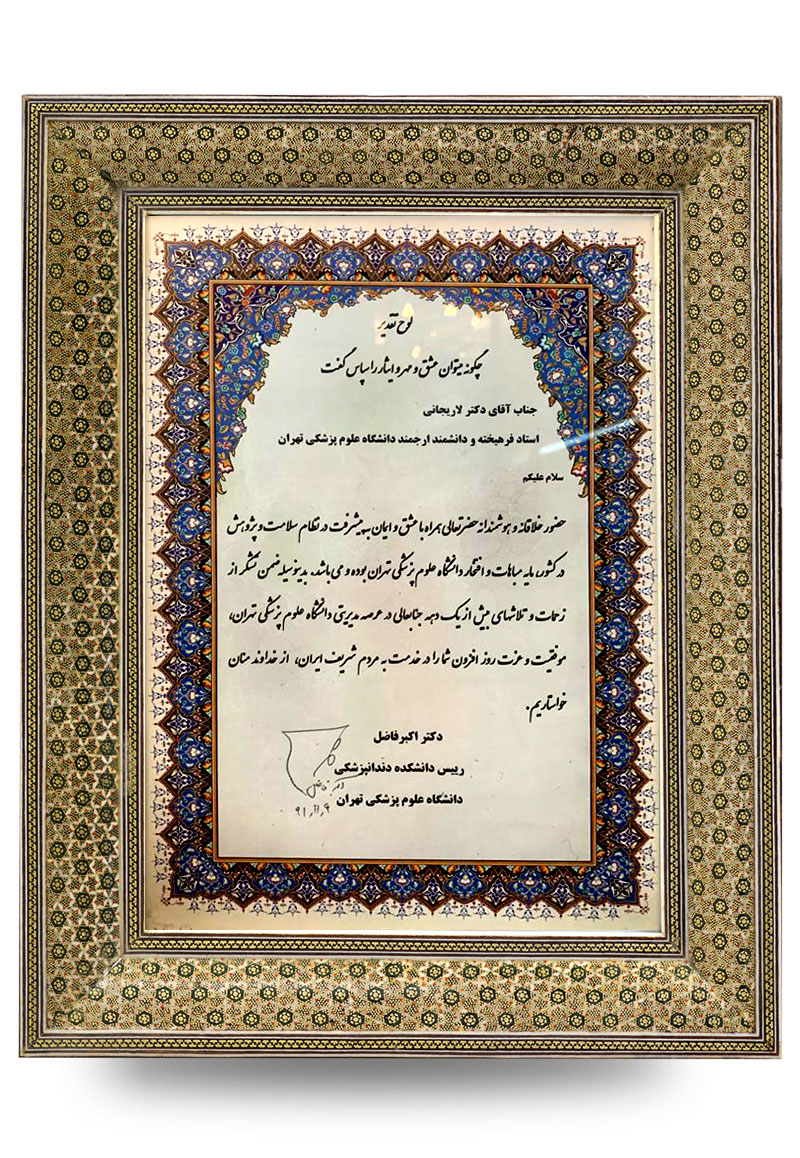 لوح تقدیر
چگونه میتوان عشق و مهر و ایثار را سپاس گفت
جناب آقای دکتر لاریجانی
استاد فرهیخته و دانشمند ارجمند دانشگاه علوم پزشکی تهران
سلام علیکم
حضور خلاقانه و هوشمندانه حضرتعالی همراه با عشق و ایمان به پیشرفت در نظام سلامت و پژوهش
در کشور، مایه مباهات و افتخار دانشگاه علوم پزشکی تهران بوده و می باشد. بدینوسیله ضمن تشکر از
زحمات و تلاشهای بیش از یک دهه جنابعالی در عرصه مدیریتی دانشگاه علوم پزشکی تهران،
موفقیت و عزت روز افزون شما را در خدمت به مردم شریف ایران، از خداوند منان
خواستاریم.
دکتر اکبر فاضل
رییس دانشکده دندانپزشکی
دکتر فاضل
دانشگاه علوم پزشکی تهران
۹۱,۱۱,۹